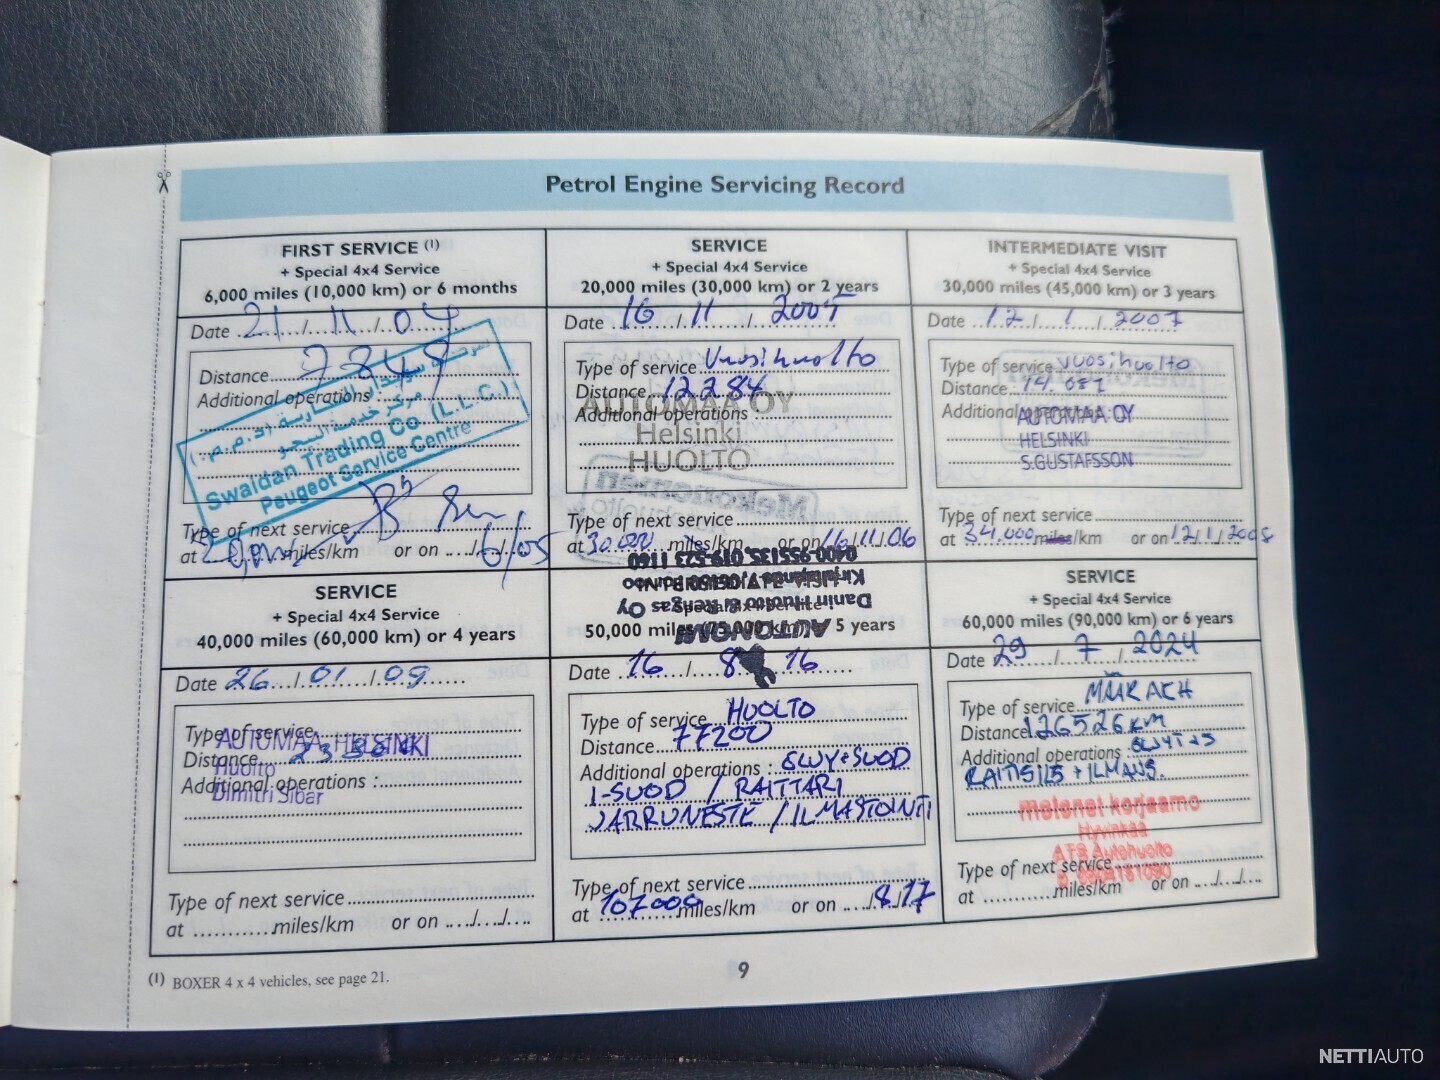 Petrol Engine Servicing Record
FIRST SERVICE (1)
+ Special 4x4 Service
6,000 miles (10,000 km) or 6 months
Date 21/11/04
Distance 7849
Additional operations :
سويدان التجارية (ذ.م.م.)
مركز خدمة البيجو
Swaidan Trading Co. (L.L.C.)
Peugeot Service Centre
Type of next service
at miles/km or on 6/05
SERVICE
+ Special 4x4 Service
20,000 miles (30,000 km) or 2 years
Date 16/11 2005
Type of service Vuosihuolto
Distance 12284
Additional operations :
AUTOMAA OY
Helsinki
HUOLTO
Mekonomen
Type of next service
at 30.000 miles/km or on 16/11/06
INTERMEDIATE VISIT
+ Special 4x4 Service
30,000 miles (45,000 km) or 3 years
Date 12/1/2007
Type of service vuosihuolto
Distance 14.081
Additional operations :
AUTOMAA OY
HELSINKI
S.GUSTAFSSON
Type of next service
at 34.000 miles/km or on 12/1/2008
SERVICE
+ Special 4x4 Service
40,000 miles (60,000 km) or 4 years
Date 26/01/09
Type of service
AUTOMAA, HELSINKI
Distance
Huolto
Additional operations :
Dimitri Sibar
Type of next service
at miles/km or on
0400-955135, 019-523 1160
Danin Huolto & Rengas Oy
AUTONOMI
+ Special 4x4 Service
50,000 miles (75,000 km) or 5 years
Date 16/8 16
Type of service HUOLTO
Distance 77200
Additional operations : ÖLJY+SUOD
I-SUOD / RAITTARI
JARRUNESTE / ILMASTOINTI
Type of next service
at 107000 miles/km or on 8/17
SERVICE
+ Special 4x4 Service
60,000 miles (90,000 km) or 6 years
Date 29/7/2024
Type of service MÄÄRAIK
Distance 126526 km
Additional operations : ÖLJYT+S
RAITIS ILS + ILMANS.
metenet korjaamo
Hyvinkää
ATR Autohuolto
Type of next service
at miles/km or on
(1) BOXER 4 x 4 vehicles, see page 21.
9
NETTIAUTO